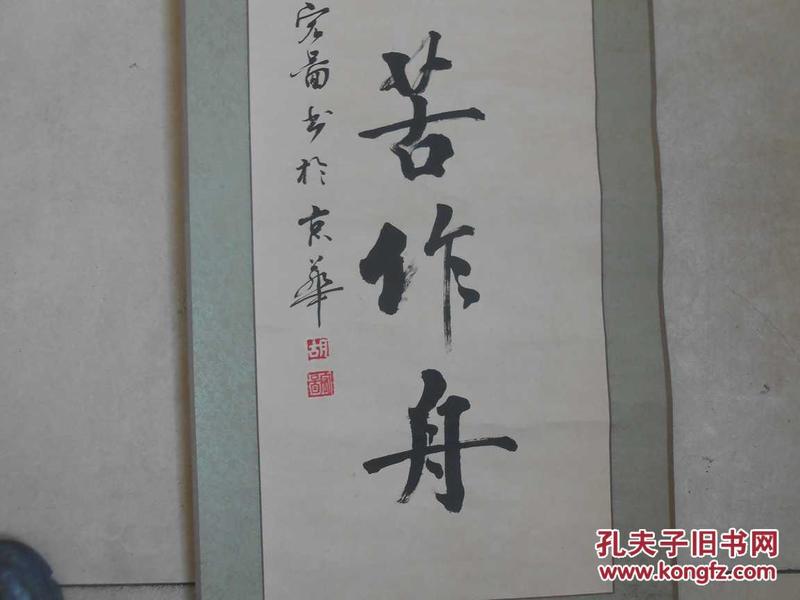 苦作舟
宏图书於京华
胡
孔夫子旧书网
www.kongfz.com